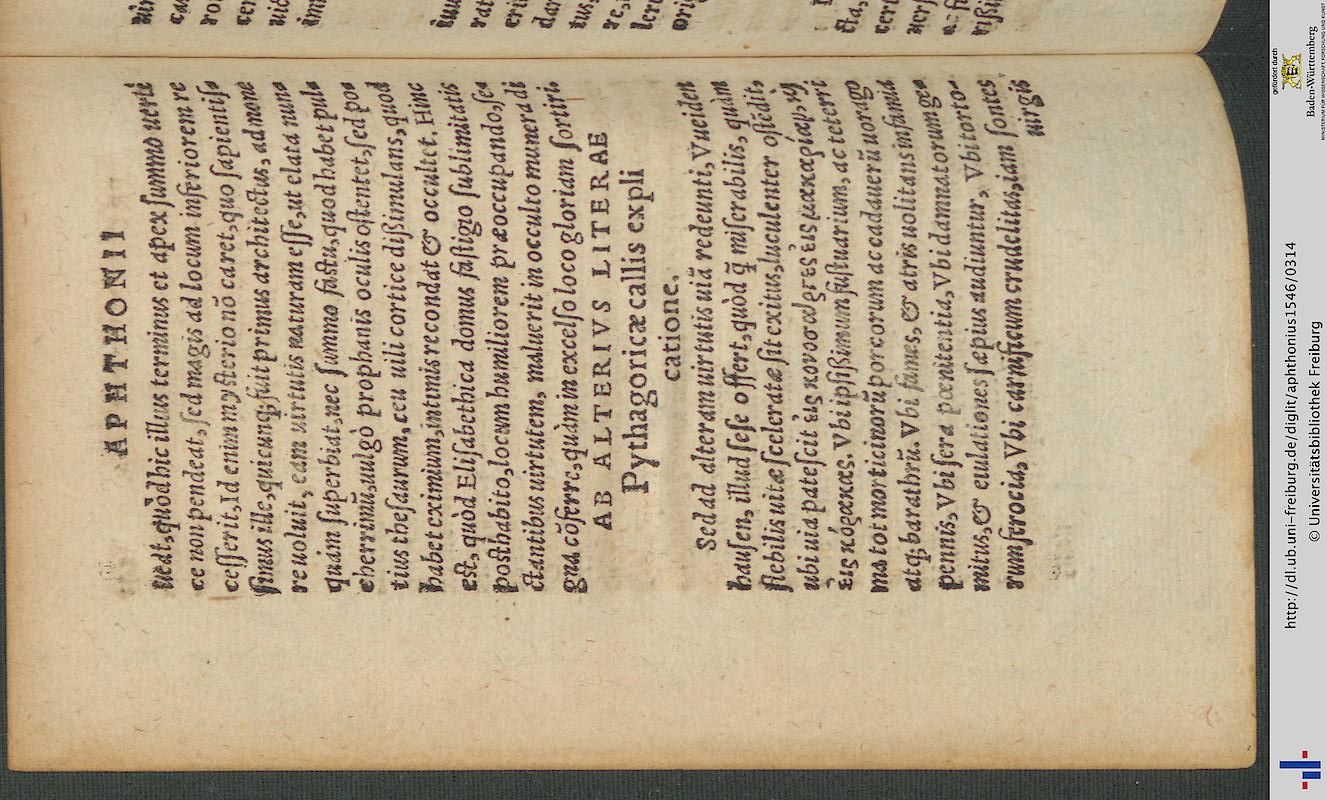 APHTHONII
ueat, quòd hic illius terminus et apex summo uerti
ce non pendeat, sed magis ad locum inferiorem re
cesserit, Id enim mysterio nō caret, quo sapientiſ
simus ille, quicunq; fuit primus architectus, admone
re uoluit, eam uirtutis naturam esse, ut elata nun
quàm superbiat, nec summo fastu, quod habet pul
cherrimū, uulgò prophanis oculis ostentet, sed po
tius thesaurum, ceu uili cortice dißimulans, quod
habet eximium, intimis recondat & occultet. Hinc
est, quòd Elisabethica domus fastigio sublimitatis
posthabito, locum humiliorem præoccupando, se
ctantibus uirtutem, maluerit in occulto munera di
gna cōferre, quàm in excelso loco gloriam sortiri.
AB ALTERIVS LITERAE
Pythagoricæ callis expli
catione.
Sed ad alteram uirtutis uiā redeunti, Vueiden
hausen, illud sese offert, quòd q̃ miserabilis, quàm
flebilis uitæ sceleratæ sit exitus, luculenter ostēdit,
ubi uia patescit
εἰς κόρακας. Vbi ipsissimum fustuarium, ac teterri
ma tot morticinorū porcorum ac cadauerū uorago
atq; barathrū. Vbi fames, & atris uolitans infamia
pennis, Vbi sera pœnitentia, Vbi damnatorum ge
mitus, & eiulationes sæpius audiuntur, Vbi torto-
rum ferocia, Vbi carnificum crudelitas, iam sontes
uirgis
gefördert durch
Baden-Württemberg
MINISTERIUM FÜR WISSENSCHAFT, FORSCHUNG UND KUNST
http://dl.ub.uni-freiburg.de/diglit/aphthonius1546/0314
© Universitätsbibliothek Freiburg